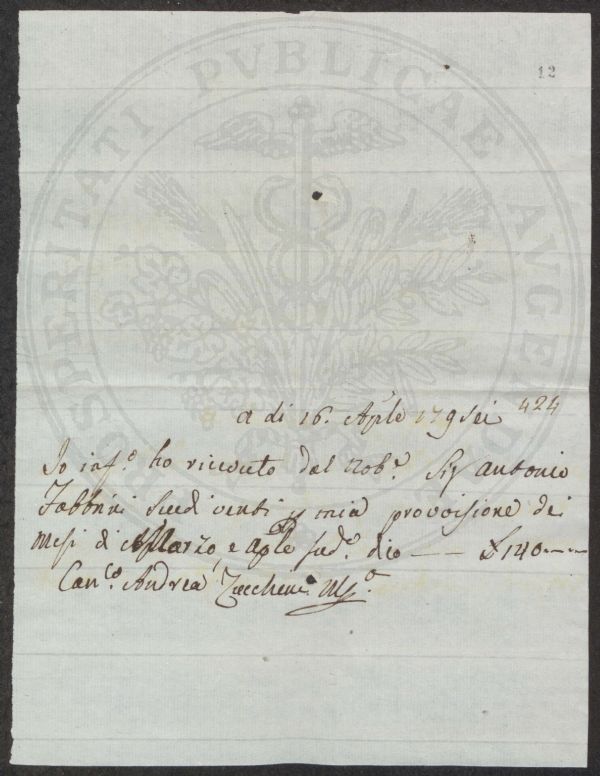 PROSPERITATI PVBLICAE AVGENDAE
12
a di 16. Aple 179sei
424
Io info. ho ricevuto dal Nobe. Sig Antonio
Fabbrini Scudi venti p mia provvisione dei
Mesi di Marzo, e Aple sudo. dico —— £ 140——
Canco. Andrea Zucchini Mo.